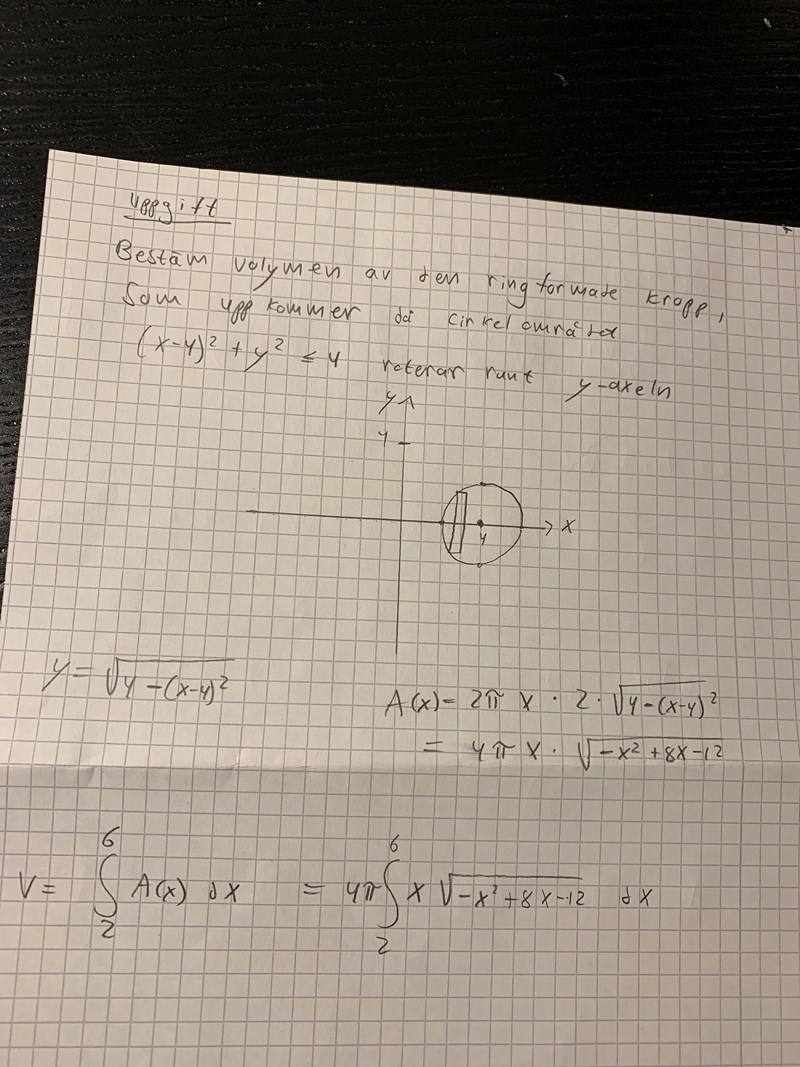 uppgift
Bestäm volymen av den ringformade kropp,
Som uppkommer då cirkelområdet
(x-4)² + y² ≤ 4 roterar runt y-axeln
y
4
x
4
y = √(4-(x-4)²)
A(x) = 2π x · 2 · √(4-(x-4)²)
= 4π x · √(-x²+8x-12)
V = ∫₂⁶ A(x) dx = 4π ∫₂⁶ x √(-x²+8x-12) dx